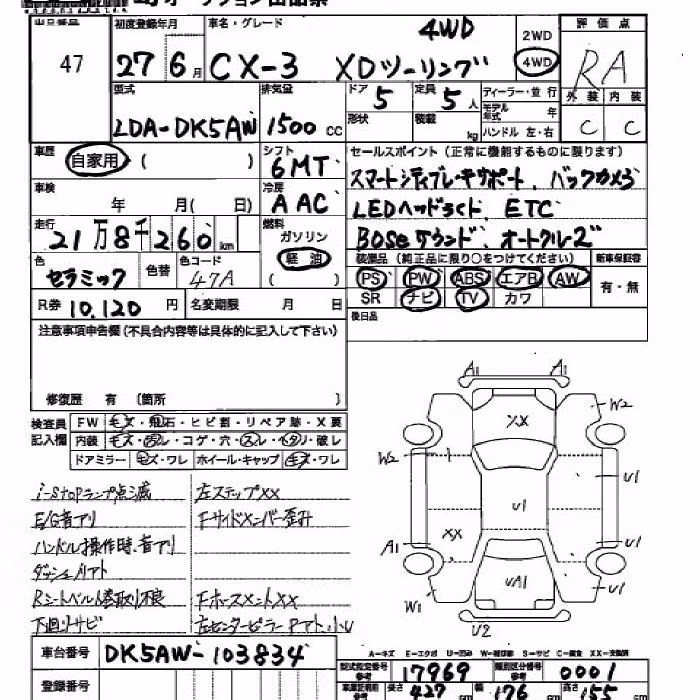 出品番号 初度登録年月 車名・グレード 4WD 2WD 評価点
47 27 6月 CX-3 XDツーリング 4WD RA
型式 排気量 ドア 5 定員 5人 ディーラー・並行 外装 内装
LDA-DK5AW 1500cc 形状 積載 kg モデル年式 年 ハンドル 左・右 C C
車歴 自家用 ( ) シフト 6MT セールスポイント (正常に機能するものに限ります)
スマートシティブレーキサポート、バックカメラ
車検 年 月( 日) 冷房 AAC LEDヘッドライト、ETC
走行 21万8千260km 燃料 ガソリン BOSEサウンド、オートクルーズ
軽油 ( ) 装備品 (純正品に限り〇をつけてください) 新車保証書
色 セラミック 色替 色コード 47A PS PW ABS エアB AW 有・無
R券 10,120円 名変期限 月 日 SR ナビ TV カワ
後日品
注意事項申告欄(不具合内容等は具体的に記入して下さい)
修復歴 有 〔箇所 〕
検査員記入欄 FW キズ・飛石・ヒビ割・リペア跡・X要
内装 キズ・汚レ・コゲ・穴・スレ・ヘタリ・破レ
ドアミラー キズ・ワレ ホイール・キャップ キズ・ワレ
i-STOPランプ点滅 左ステップXX
E/G音アリ Fサイドメンバー歪み
ハンドル操作時、音アリ
ダッシュ八アト
Rシートベルト巻取り不良 FホースメントXX
下廻りサビ 左センターピラーPアト、小U
A1 A1
XX W2
W2
U1 U1
XX
A1 U1
UA1
W1 U1
U2
A-キズ E-エクボ U-凹み W-補修跡 S-サビ C-腐食 XX-交換済
車台番号 DK5AW-103834 型式指定番号 参考 17969 類別区分番号 参考 0001
登録番号 車庫証明用 参考 長さ 427cm 幅 176cm 高さ 155cm